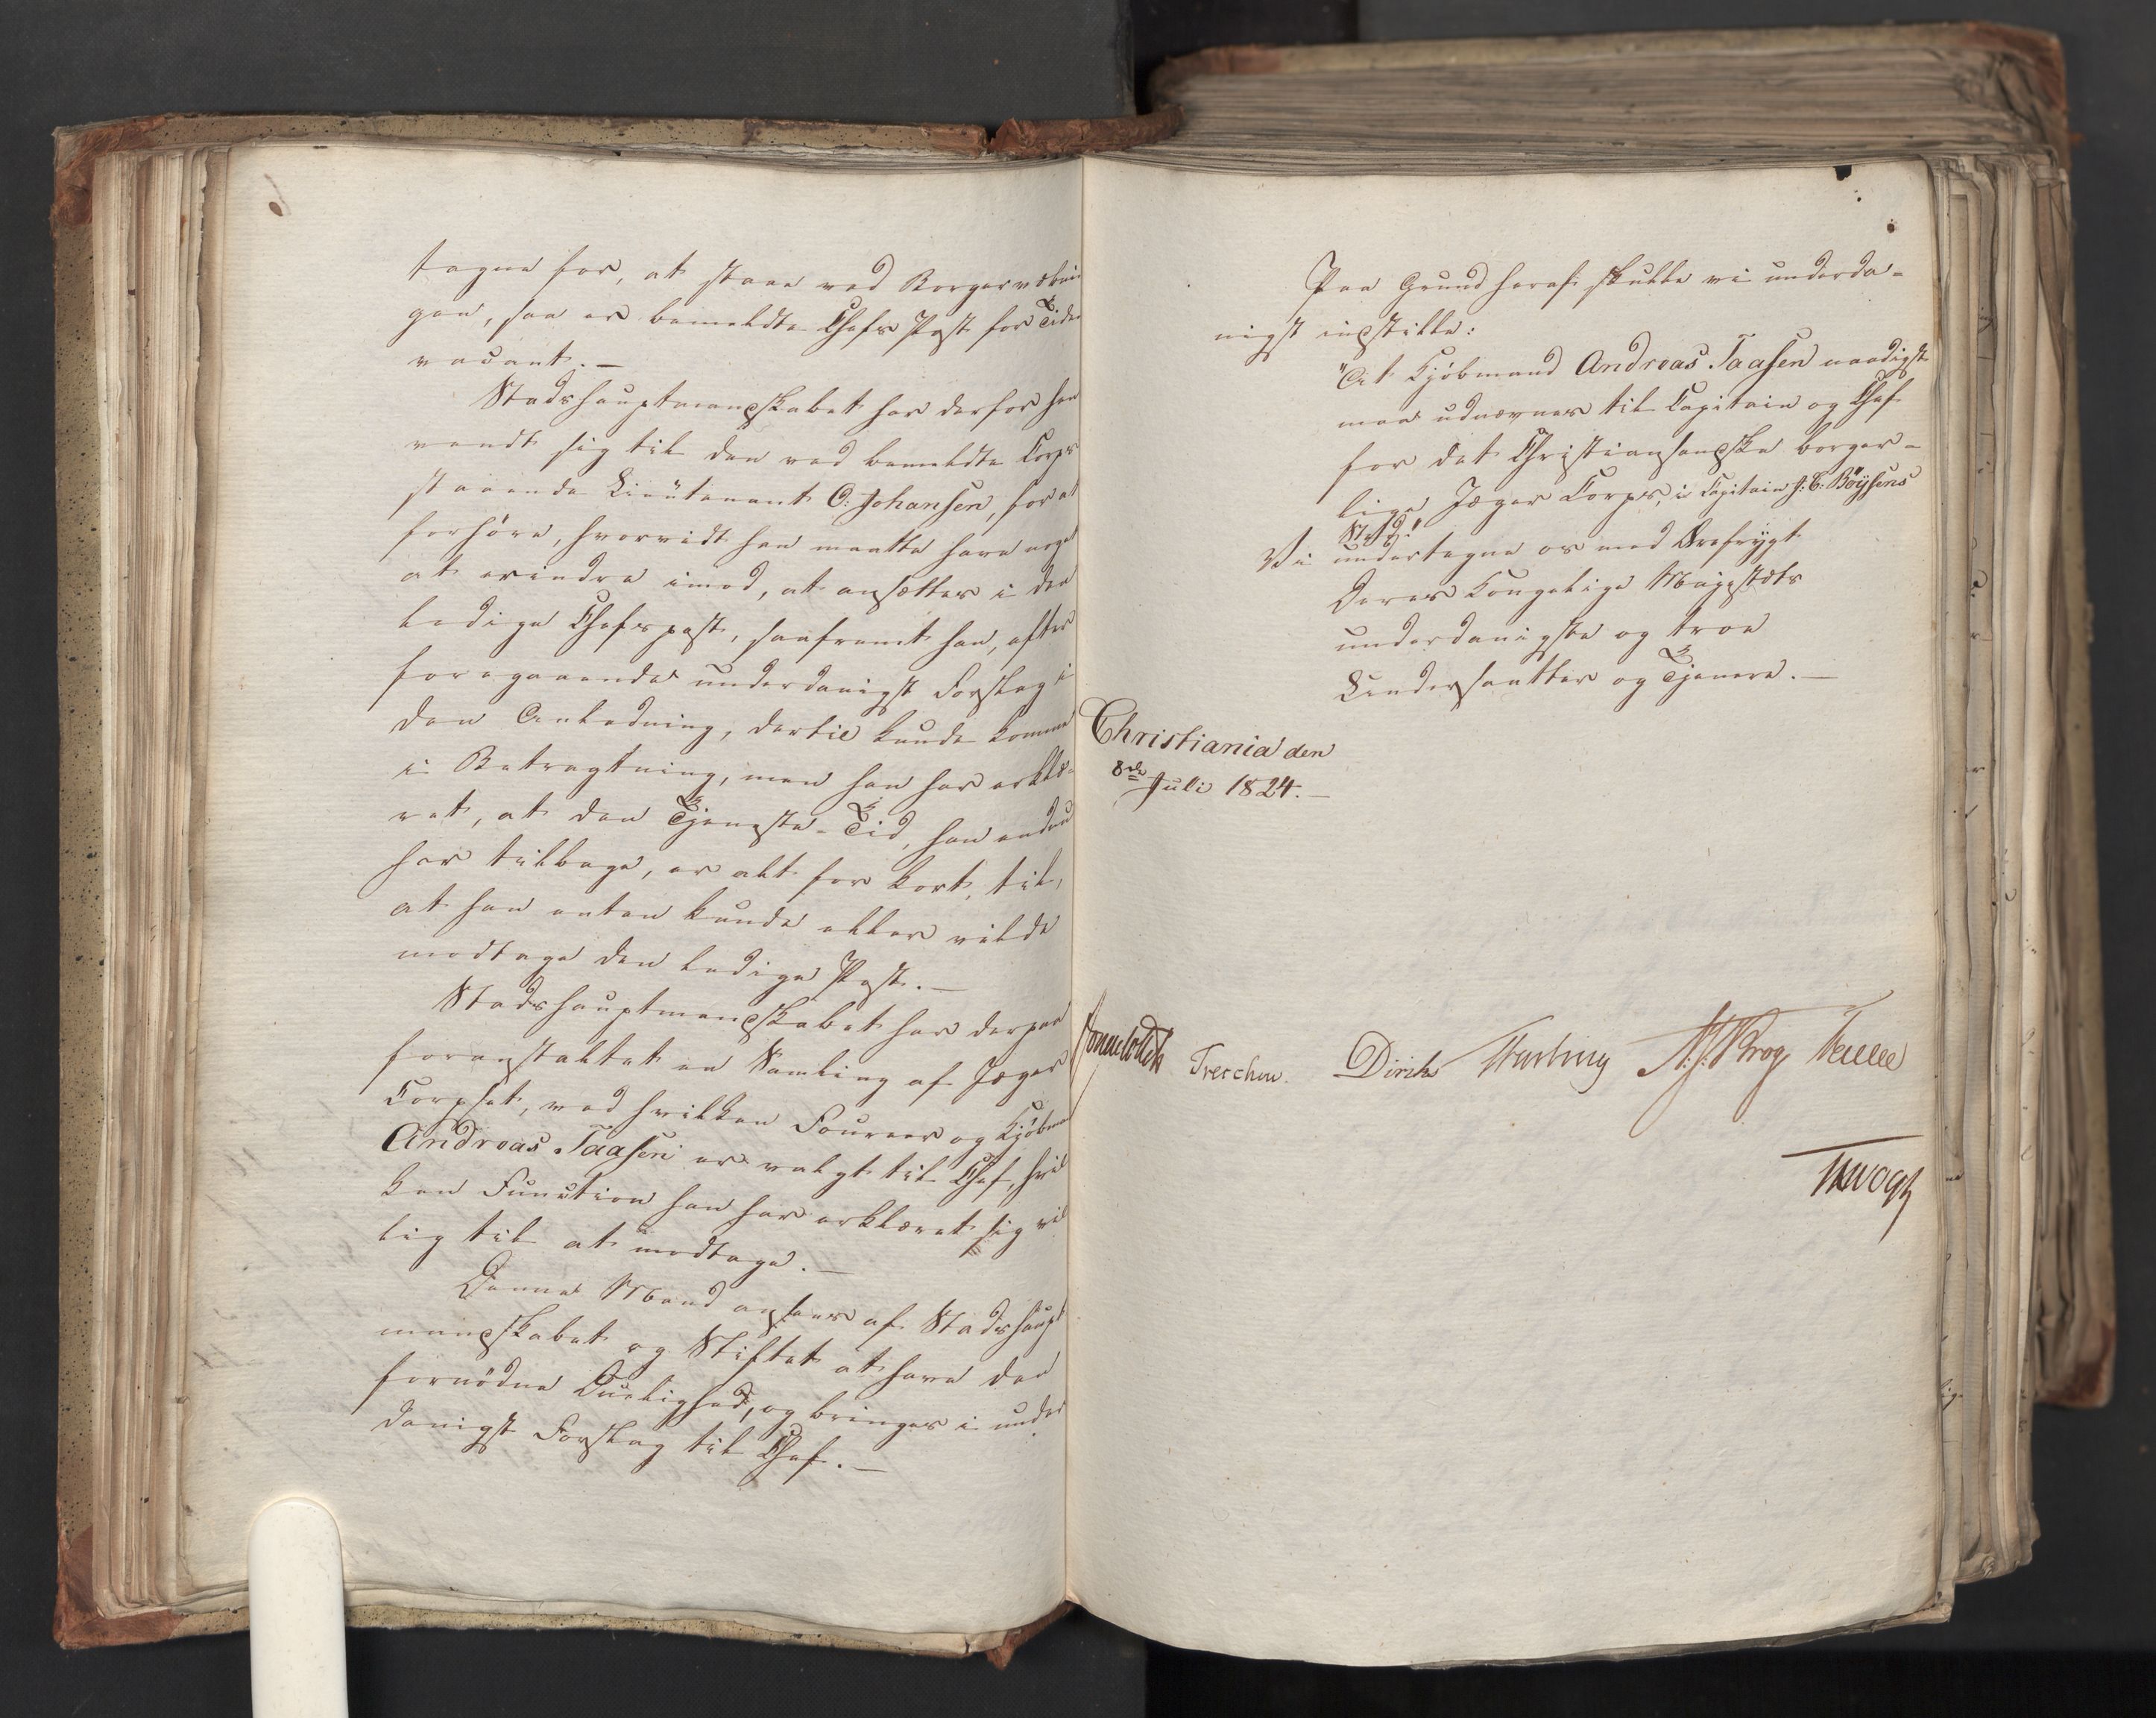 tagne for, at staae ved Borgervæbnin
gen, saa er bemeldte Chefs Post for Tiden
vacant. —
Stadshauptmandskabet har derfor hen
vendt sig til den ved bemeldte Corps
staaende Lieutenant O: Johansen, for at
forhöre, hvorvidt han maatte have noget
at erindre imod, at ansættes i den
ledige Chefspost, saafremt han, efter
foregaaende underdanigst Forslag i
den Anledning, dertil kunde komme
i Betragtning, men han har erklæ-
ret, at den Tjeneste-Tid, han endnu
har tilbage, er alt for kort, til,
at han enten kunde eller vilde
modtage den ledige Post. —
Stadshauptmandskabet har derpaa
foranstaltet en Samling af Jæger
Corpset, ved hvilken Foureer og Kjöbmand
Andreas Taasen er valgt til Chef, hvil
ken Function han har erklæret sig vil
lig til at modtage. —
Denne Mand ansees af Stadshaupt
mandskabet og Stiftet at have den
fornödne Duelighed, og bringes i under
danigst Forslag til Chef. —
Paa Grund heraf skulle vi underda-
nigst indstille:
"At Kjöbmand Andreas Taasen naadigst
maa udnævnes til Capitain og Chef
for det Christiansandske borger-
lige Jæger Corps, i Capitain J: C: Böysens
Sted."
Vi undertegne os med Ærefrygt
Deres Kongelige Majestæts
underdanigste og troe
Undersaatter og Tjenere. —
Christiania den
8de Juli 1824. —
Sommerfeldt Treschow. Diriks N: J: Krog